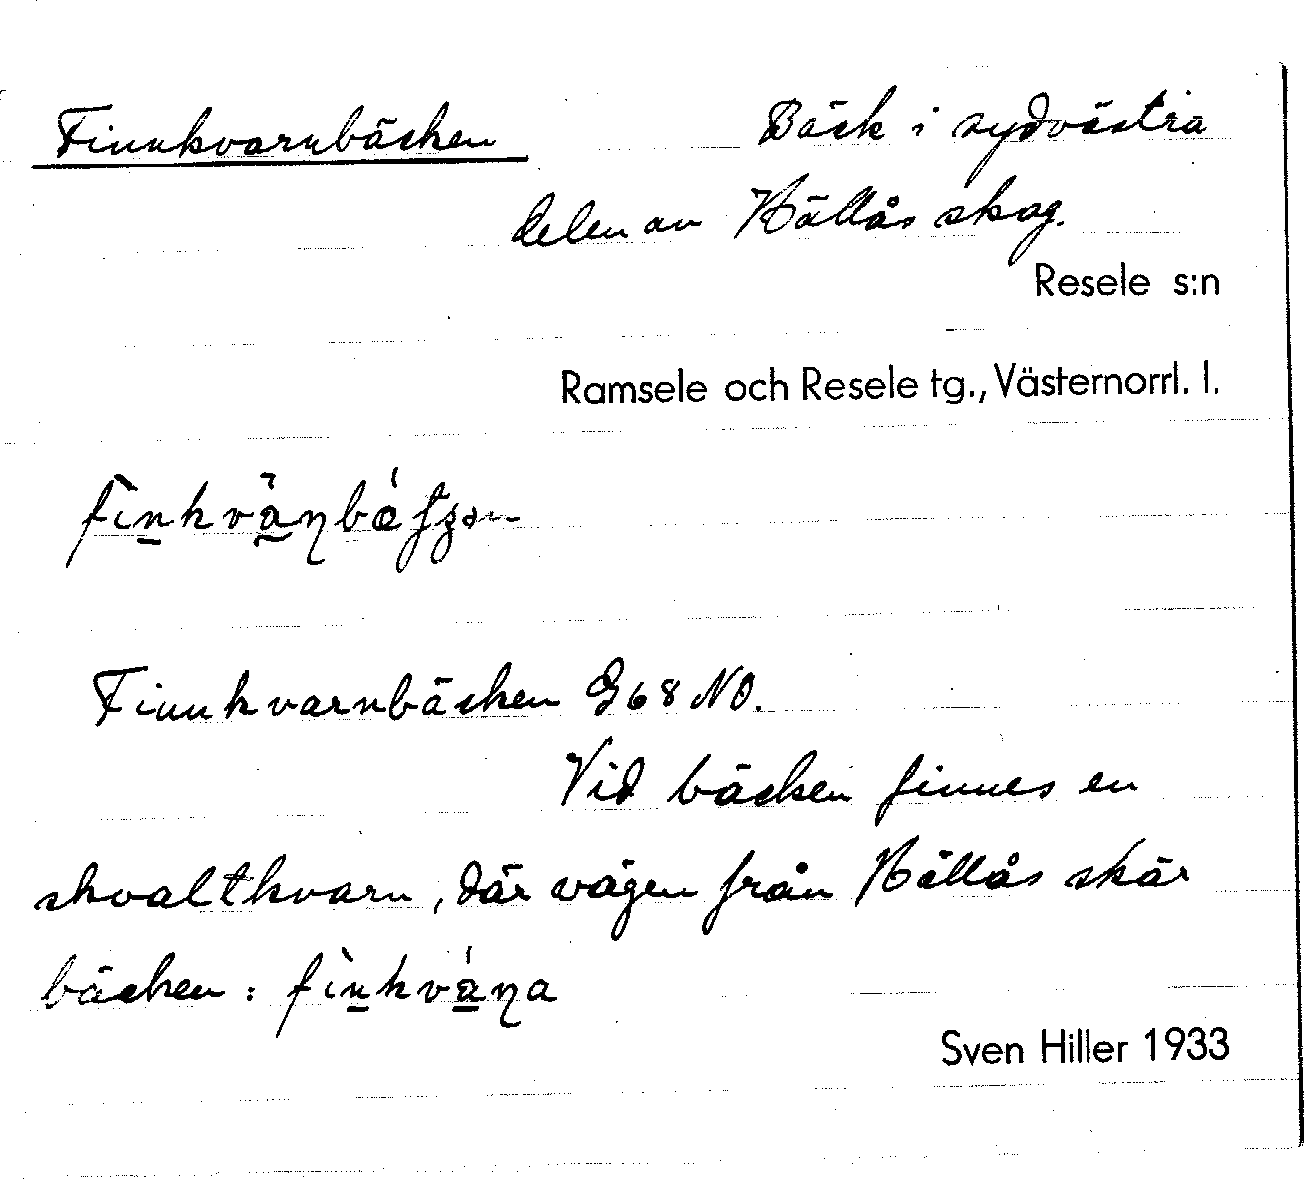 Finnkvarnbäcken Bäck i sydvästra
delen av Hällås skog.
Resele s:n
Ramsele och Resele tg., Västernorrl. l.
Finnkvarnbäcken G68 NO.
Vid bäcken finnes en
skvaltkvarn, där vägen från Hällås skär
bäcken:
Sven Hiller 1933